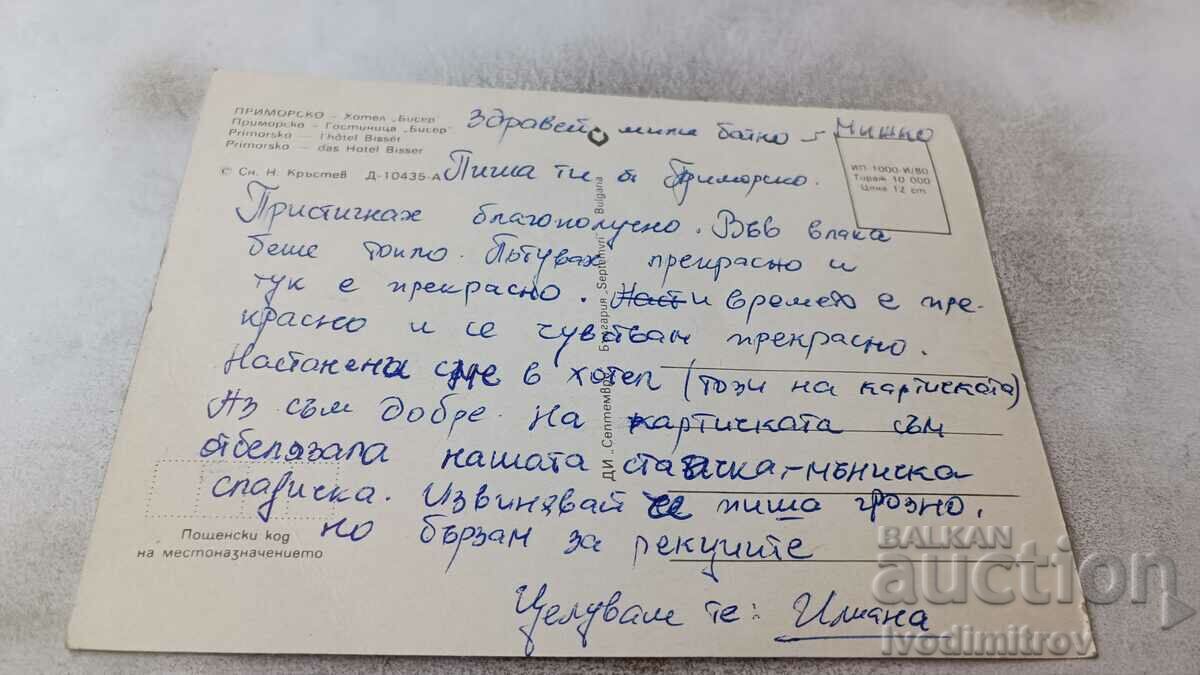 ПРИМОРСКО – Хотел „Бисер"
Приморско – Гостиница „Бисер"
Primorsko – l'hôtel Bissér
Primorsko – das Hotel Bisser
© Сн. Н. Кръстев Д-10435-А
ИП 1000-И/80
Тираж 10 000
Цена 12 ст
Здравей мили батко – Мишко
Пиша ти от Приморско.
Пристигнах благополучно. Във влака
беше топло. Пътувах прекрасно и
тук е прекрасно. и времето е пре-
красно и се чувствам прекрасно.
Настанени сме в хотел (този на картичката)
Аз съм добре. На картичката съм
отбелязала нашата стаичка-мъничка
спалничка. Извинявай че пиша грозно.
но бързам за
Целувам те:
ДИ „Септември" България „Septemvri" Bulgaria
Пощенски код
на местоназначението
BALKAN
auction
ivodimitrov